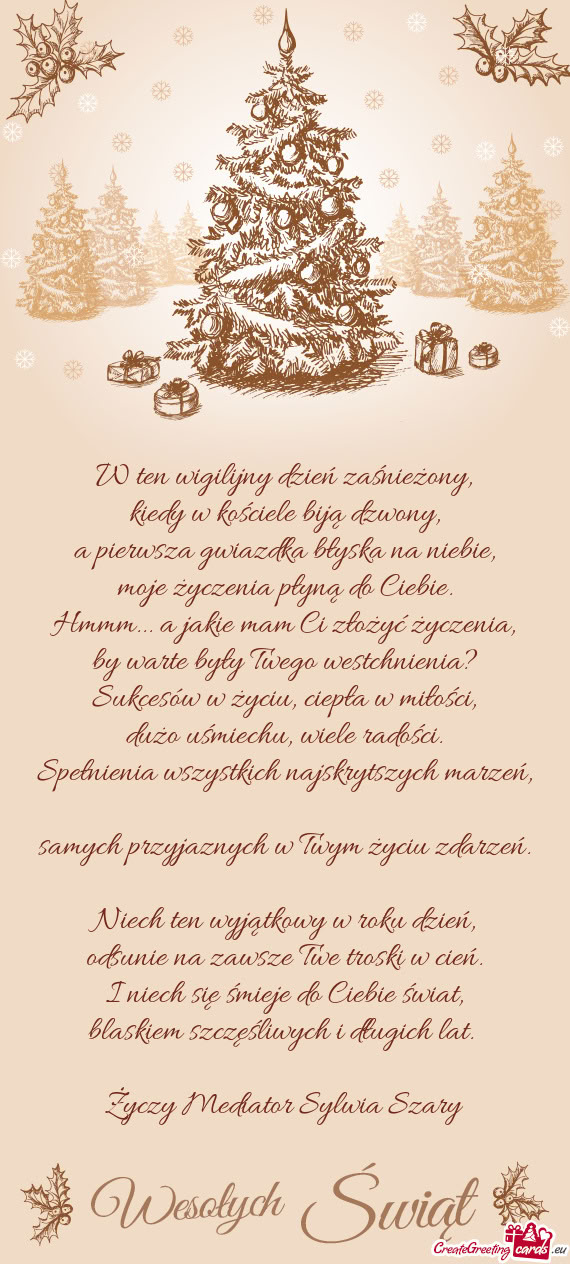 W ten wigilijny dzień zaśnieżony,
kiedy w kościele biją dzwony,
a pierwsza gwiazdka błyska na niebie,
moje życzenia płyną do Ciebie.
Hmmm... a jakie mam Ci złożyć życzenia,
by warte były Twego westchnienia?
Sukcesów w życiu, ciepła w miłości,
dużo uśmiechu, wiele radości.
Spełnienia wszystkich najskrytszych marzeń,
samych przyjaznych w Twym życiu zdarzeń.
Niech ten wyjątkowy w roku dzień,
odsunie na zawsze Twe troski w cień.
I niech się śmieje do Ciebie świat,
blaskiem szczęśliwych i długich lat.
Życzy Mediator Sylwia Szary
Wesołych Świąt
CreateGreetingcards.eu